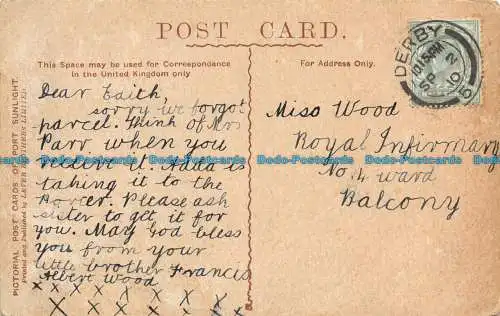 POST CARD.
This Space may be used for Correspondence
in the United Kingdom only
For Address Only.
Dear Faith,
sorry we forgot
parcel. Think of Mrs
Parr, when you
recieve it. Adda is
taking it to the
Porter. Please ask
sister to get it for
you. May God bless
you from your
little brother Francis
Albert Wood
x x x x x x x x
x x x x x x x
Miss Wood
Royal Infirmary
No. 4 ward
Balcony
DERBY
10.15 PM
SP 2
10
5
PICTORIAL POST CARDS OF PORT SUNLIGHT.
Printed and Published by LEVER BROTHERS LIMITED.
Dodo-Postcards Dodo-Postcards Dodo-Postcards Dodo-Postcards